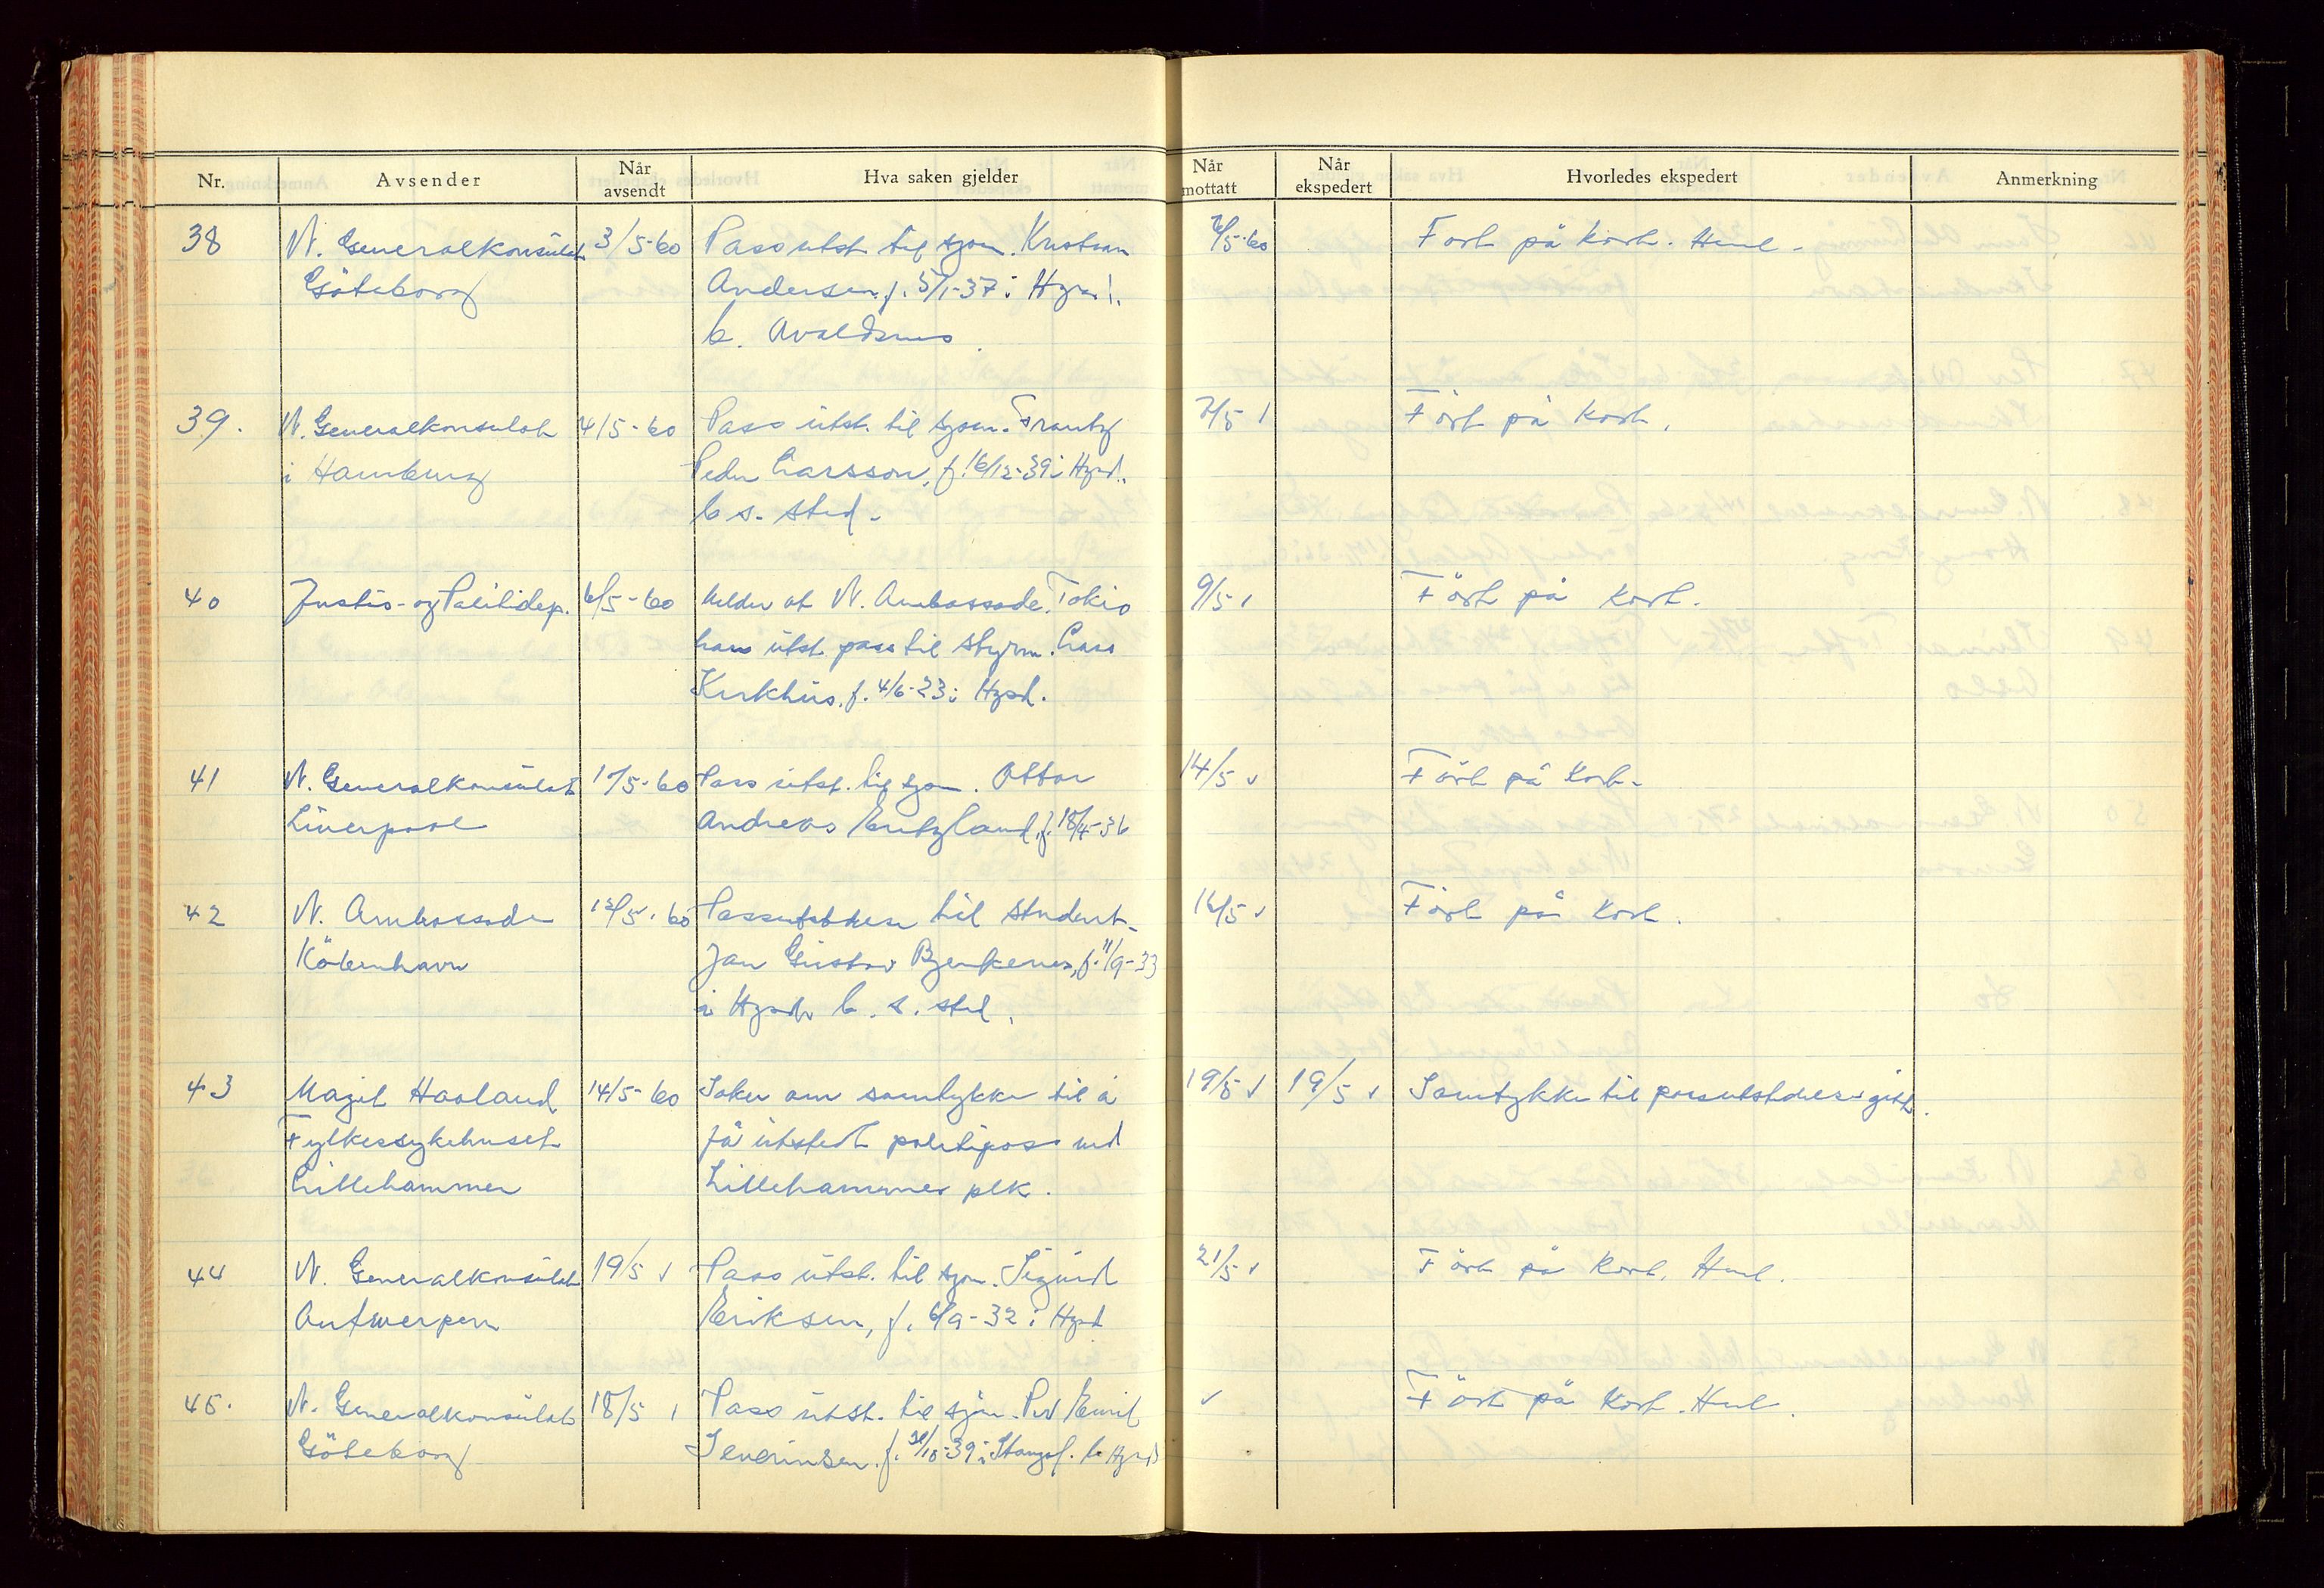 Nr. Avsender Når avsendt Hva saken gjelder Når mottatt Når ekspedert Hvorledes ekspedert Anmerkning
38 N. Generalkonsulat 3/5-60 Pass utst. til sjøm. Kristian 7/5-60 Ført på kort.
Göteborg Andersen, f. 5/1-37 i Hgsd.
b. Avaldsnes
39. N. Generalkonsulat 4/5-60 Pass utst. til sjøm. Frantz 7/5 Ført på kort.
i Hamburg Peder Larsson, f. 16/12-39 i Hgsd.
b s. sted.
40 Justis- og Politidep. 6/5-60 Melder at N. Ambassade, Tokio 9/5 Ført på kort.
har utst. pass til styrm. Lars
Kirkhus, f. 4/6-23 i Hgsd.
41 N. Generalkonsulat /5-60 Pass utst. til sjøm. Ottar 14/5 Ført på kort.
Liverpool Andreas f. 18/4-36
42 N. Ambassade 12/5-60 til student 16/5 Ført på kort.
København Jan Gustav f. 11/9-33
i Hgsd. b. s. sted.
43 Magit Haaland 14/5-60 Søker om samtykke til å 19/5 19/5 Samtykke til passutstedelse gitt.
Fylkessykehuset få utstedt politipass ved
Lillehammer Lillehammer plk.
44 N. Generalkonsulat 19/5 Pass utst. til sjøm. Sigurd 21/5 Ført på kort.
Antwerpen Eriksen, f. 6/9-32 i Hgsd
45. N. Generalkonsulat 18/5 Pass utst. til sjøm. Per Emil Ført på kort.
Göteborg Severinsen. f. /10-39 i b. Hgsd